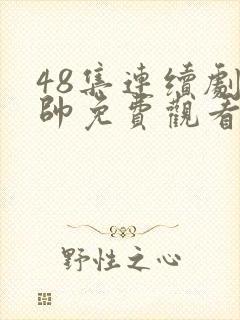 48集連續劇
帥免費觀看
野性之心